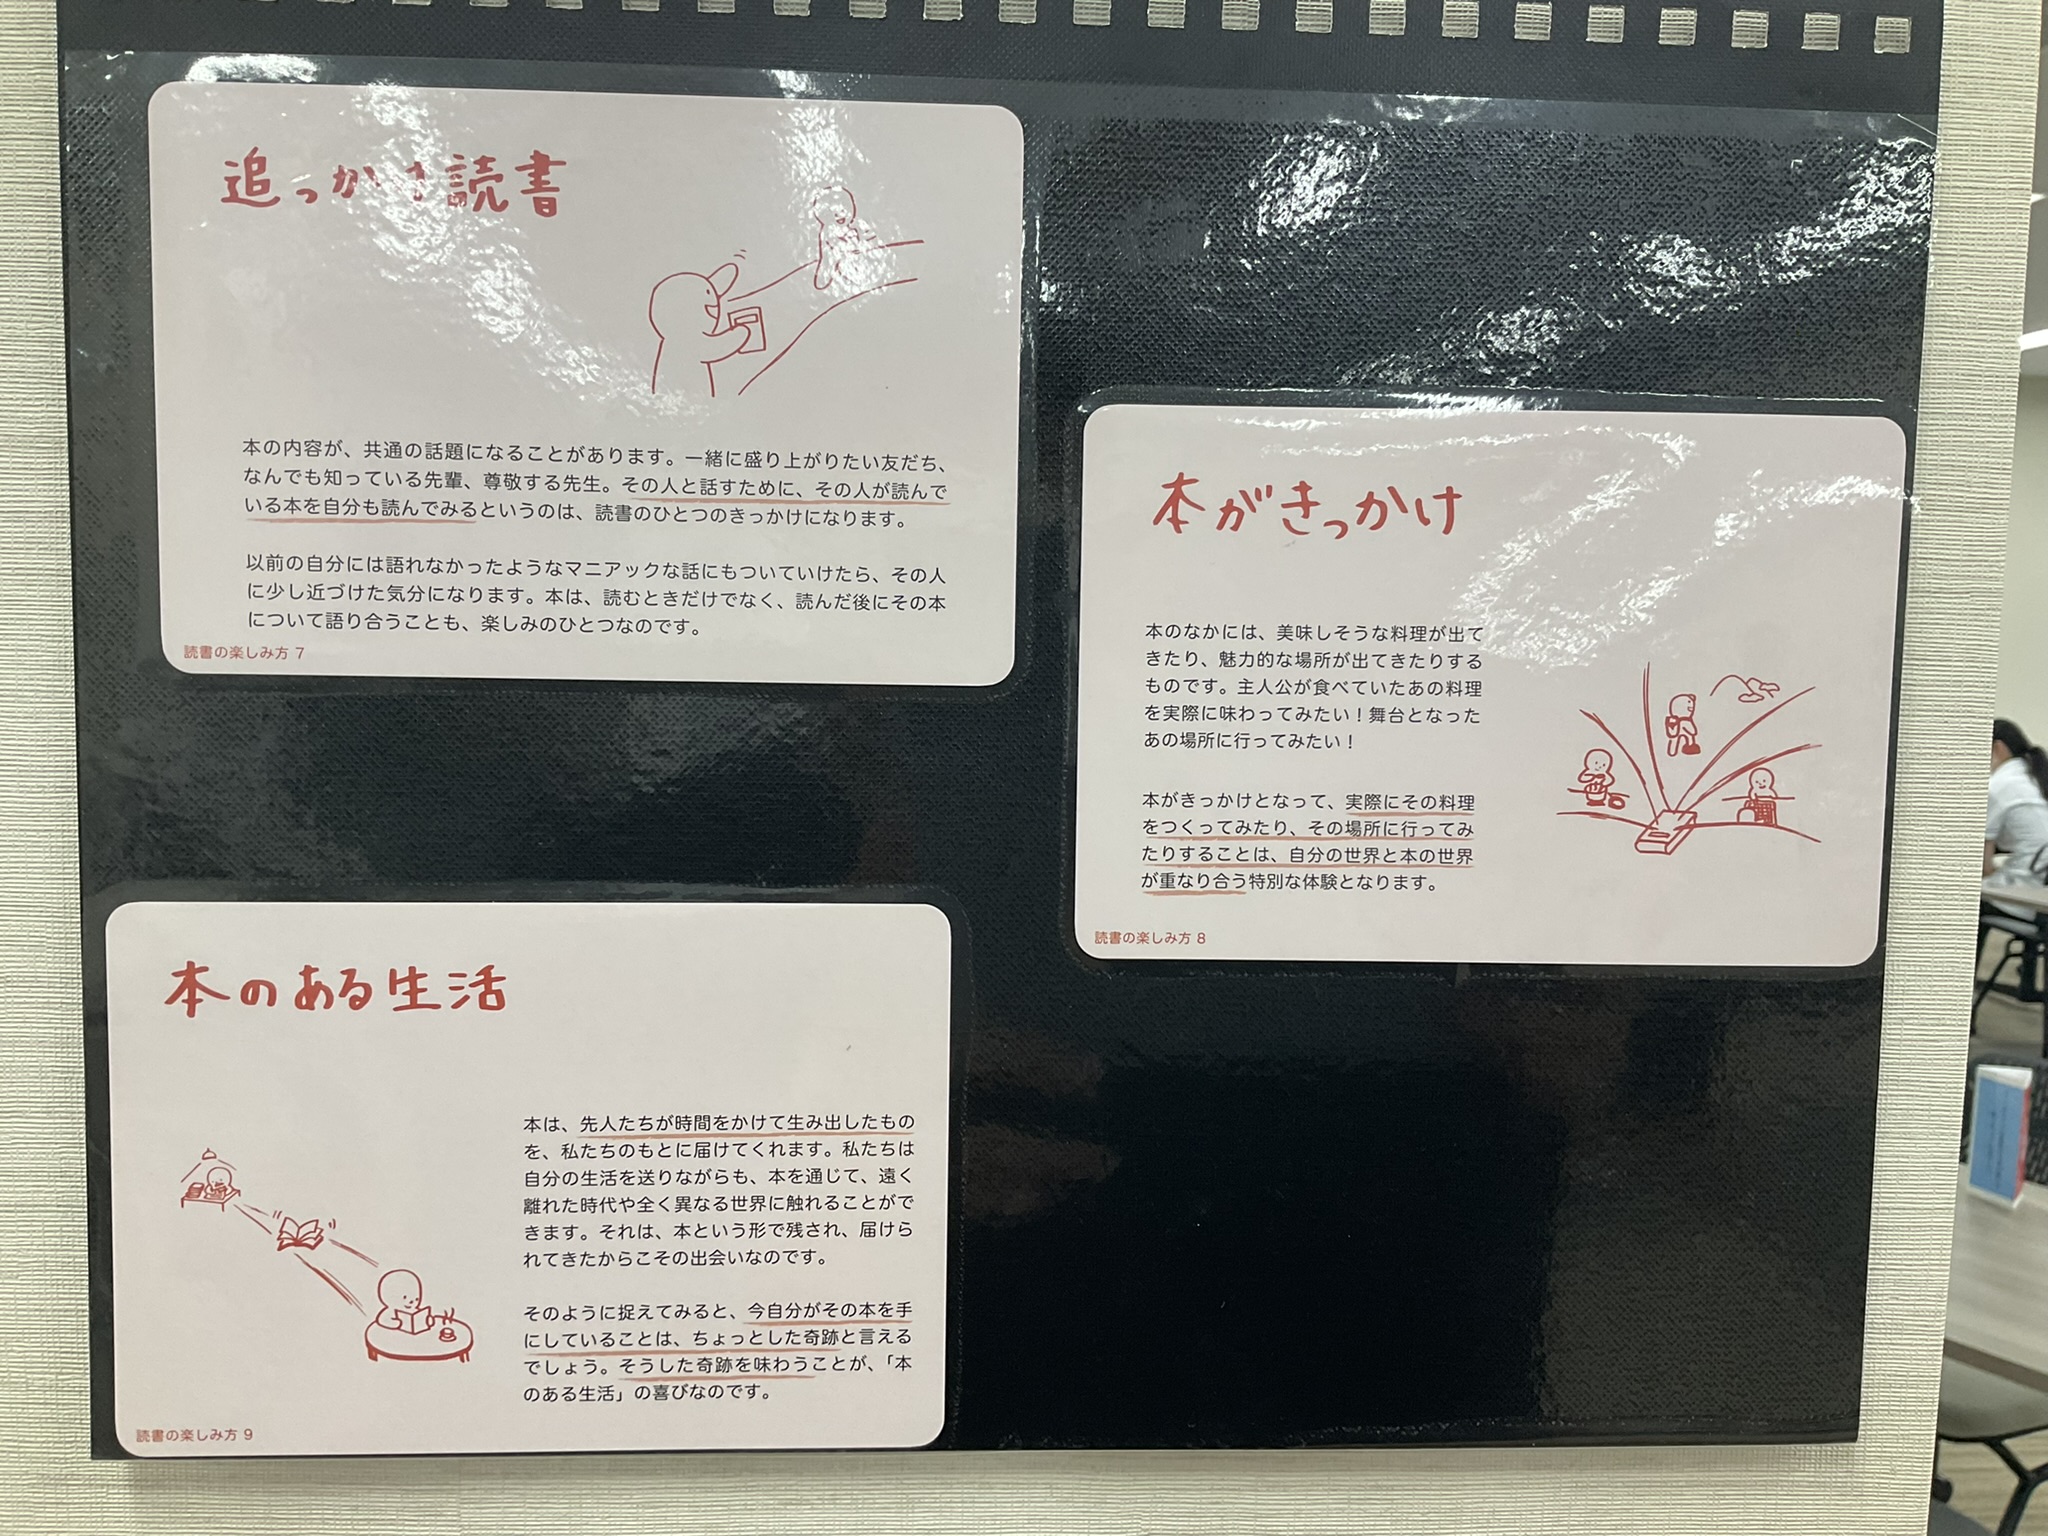 追っかけ読書
本の内容が、共通の話題になることがあります。一緒に盛り上がりたい友だち、
なんでも知っている先輩、尊敬する先生。その人と話すために、その人が読んで
いる本を自分も読んでみるというのは、読書のひとつのきっかけになります。
以前の自分には語れなかったようなマニアックな話にもついていけたら、その人
に少し近づけた気分になります。本は、読むときだけでなく、読んだ後にその本
について語り合うことも、楽しみのひとつなのです。
読書の楽しみ方 7
本がきっかけ
本のなかには、美味しそうな料理が出て
きたり、魅力的な場所が出てきたりする
ものです。主人公が食べていたあの料理
を実際に味わってみたい！舞台となった
あの場所に行ってみたい！
本がきっかけとなって、実際にその料理
をつくってみたり、その場所に行ってみ
たりすることは、自分の世界と本の世界
が重なり合う特別な体験となります。
読書の楽しみ方 8
本のある生活
本は、先人たちが時間をかけて生み出したもの
を、私たちのもとに届けてくれます。私たちは
自分の生活を送りながらも、本を通じて、遠く
離れた時代や全く異なる世界に触れることがで
きます。それは、本という形で残され、届けら
れてきたからこその出会いなのです。
そのように捉えてみると、今自分がその本を手
にしていることは、ちょっとした奇跡と言える
でしょう。そうした奇跡を味わうことが、「本
のある生活」の喜びなのです。
読書の楽しみ方 9